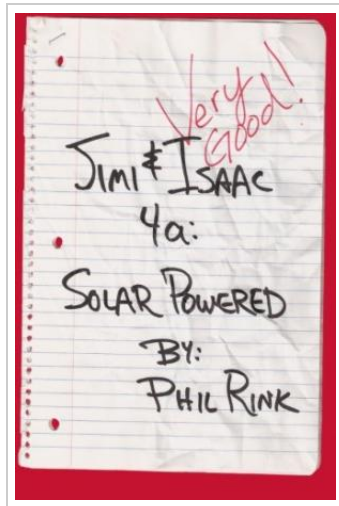 Very
Good!
Jimi & Isaac
4a:
Solar Powered
By:
Phil Rink